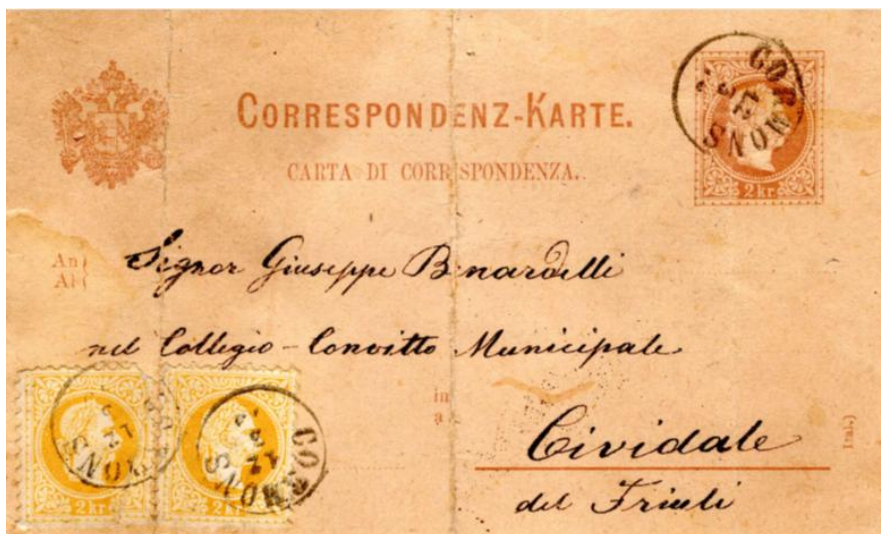 CORRESPONDENZ-KARTE.
CARTA DI CORRISPONDENZA.
CORMONS
12
2 kr.
An
Al
Signor Giuseppe
nel Collegio-Convitto Municipale
in
a
Cividale
del Friuli
(Ital.)
2 kr.
CORMONS
12
2 kr.